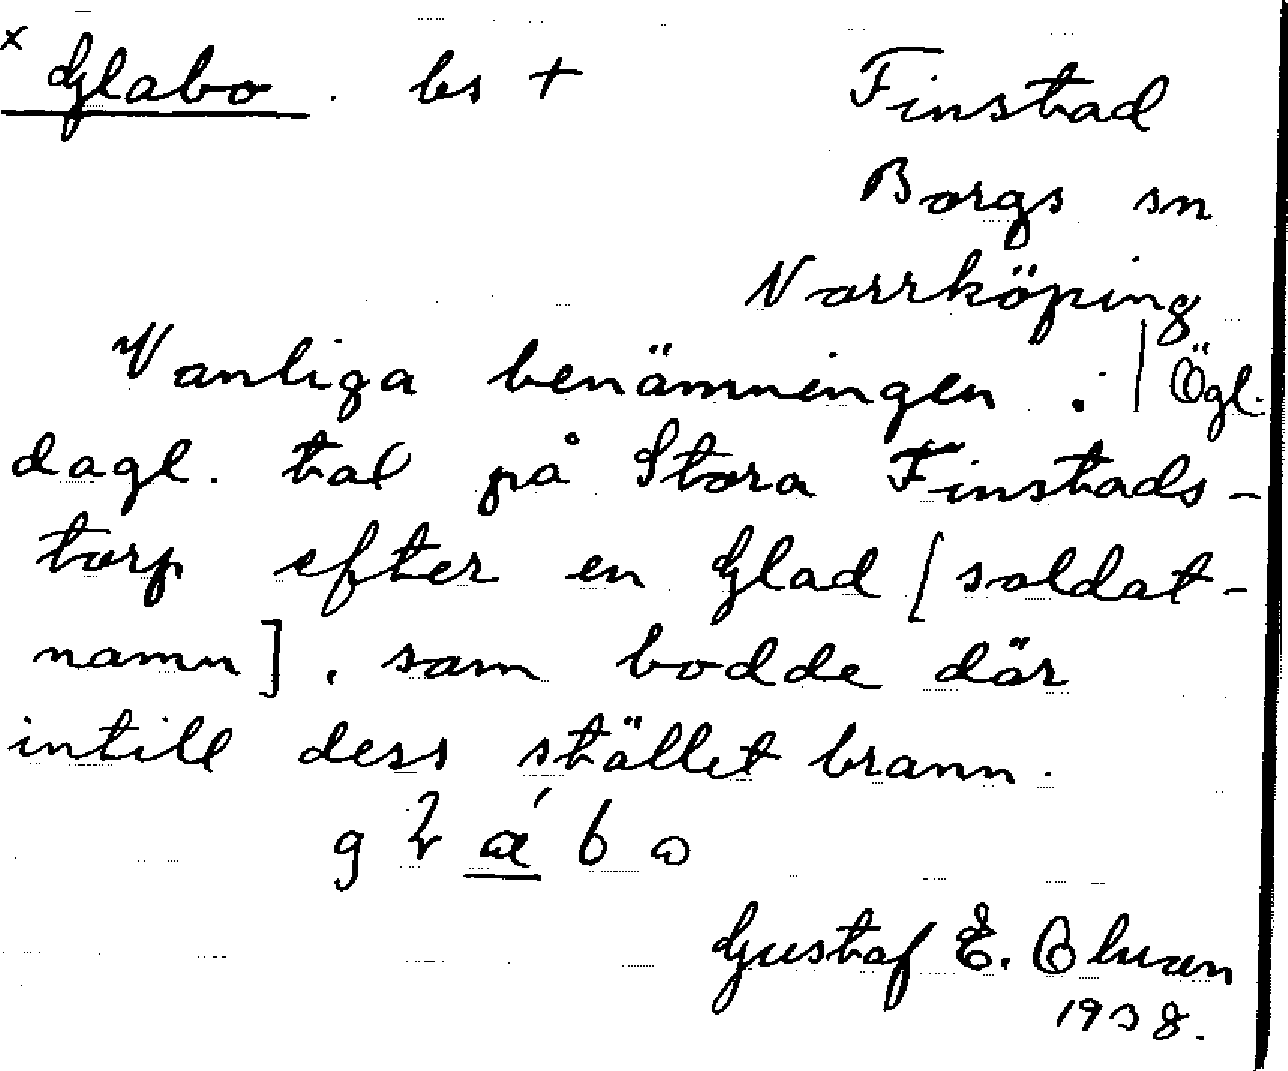 x Glabo. bs + Finstad
Borgs sn
Norrköping
Vanliga benämningen i | Ögl.
dagl. tal på Stora Finstads-
torp efter en Glad [soldat-
namn], som bodde där
intill dess stället brann.
Gustaf E. Ohman
1938.